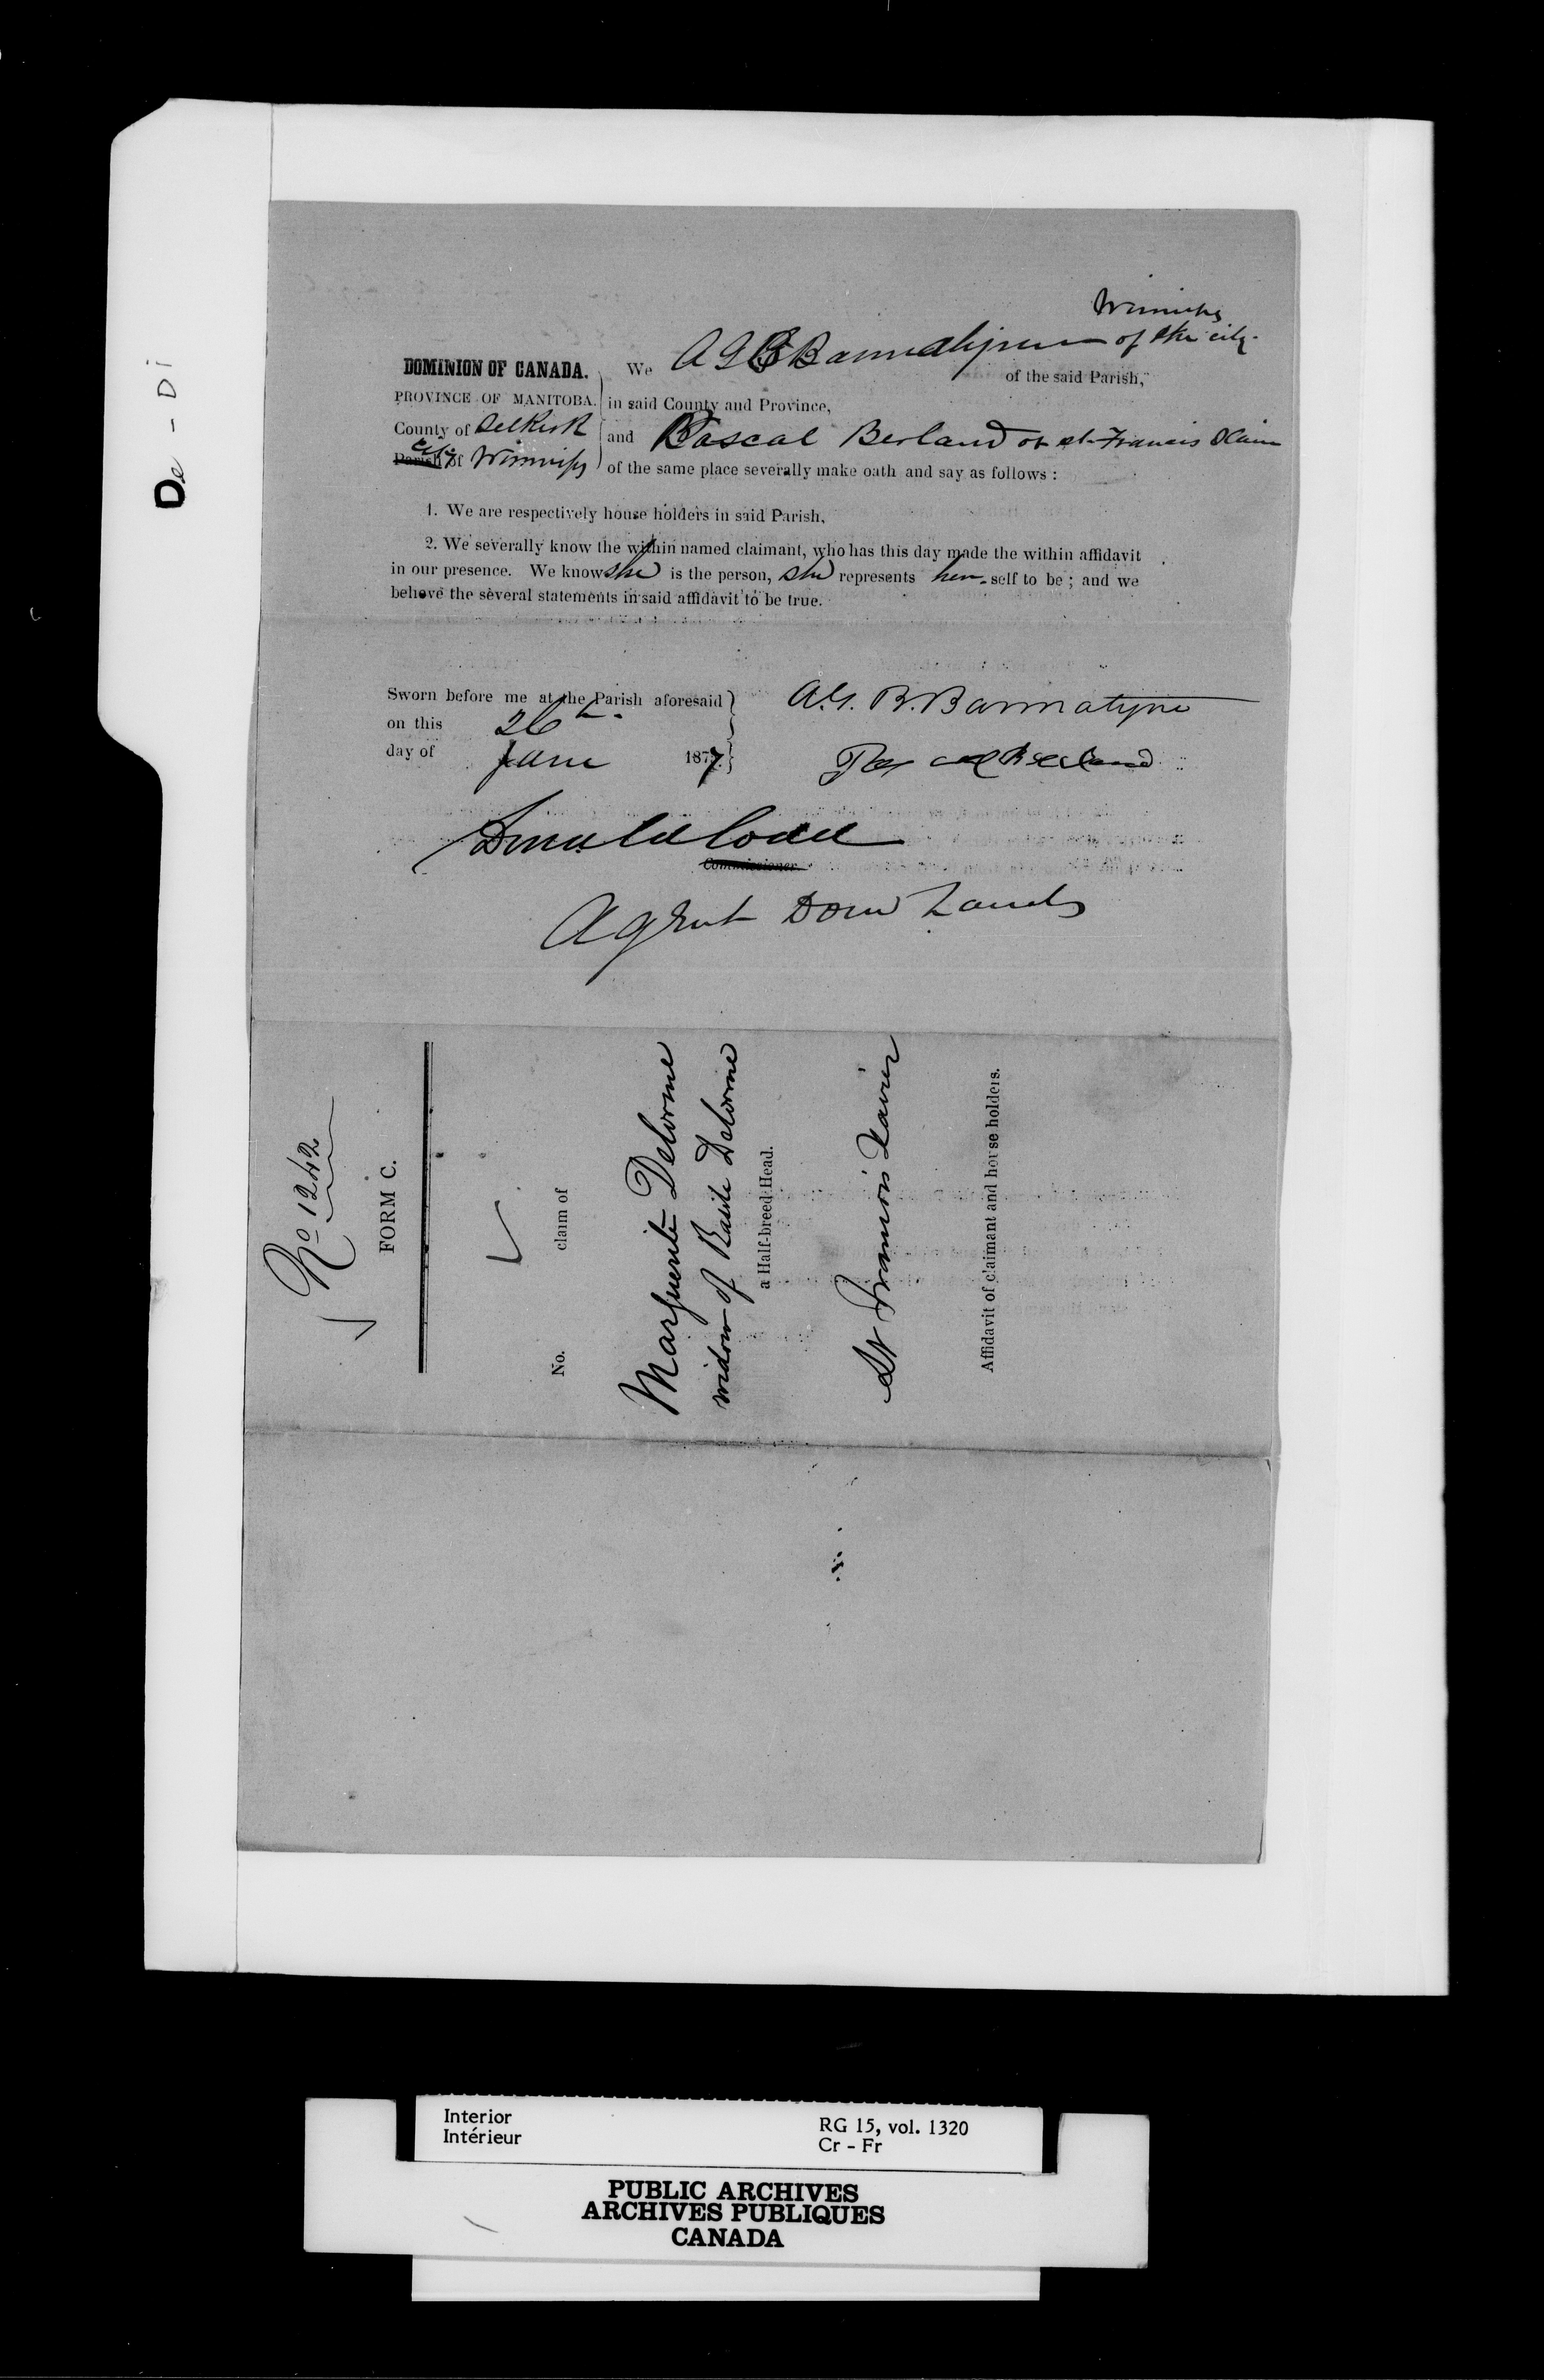 De - Di
Winnipeg
DOMINION OF CANADA. We A G B Bannatyne of the city
of the said Parish,
PROVINCE OF MANITOBA. in said County and Province,
County of Selkirk and Pascal Berland of St Francis Xavier
City
Parish of Winnipeg of the same place severally make oath and say as follows :
1. We are respectively house holders in said Parish,
2. We severally know the within named claimant, who has this day made the within affidavit
in our presence. We know she is the person, she represents her self to be ; and we
believe the several statements in said affidavit to be true.
Sworn before me at the Parish aforesaid
on this 26th
day of June 1877.
A. G. B. Bannatyne
Pascal Berland
Donald Codd
Commissioner.
Agent Dom Lands
No 1242
FORM C.
No. claim of
Marguerite Delorme
widow of Basile Delorme
a Half-breed Head.
St François Xavier
Affidavit of claimant and horse holders.
Interior
Intérieur
RG 15, vol. 1320
Cr - Fr
PUBLIC ARCHIVES
ARCHIVES PUBLIQUES
CANADA